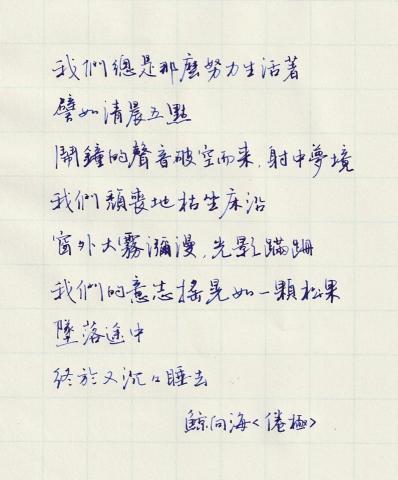 我們總是那麼努力生活著
譬如清晨五點
鬧鐘的聲音破空而來,射中夢境
我們頹喪地枯坐床沿
窗外大霧瀰漫,光影蹣跚
我們的意志搖晃如一顆松果
墜落途中
終於又沉沉睡去
鯨向海<倦極>